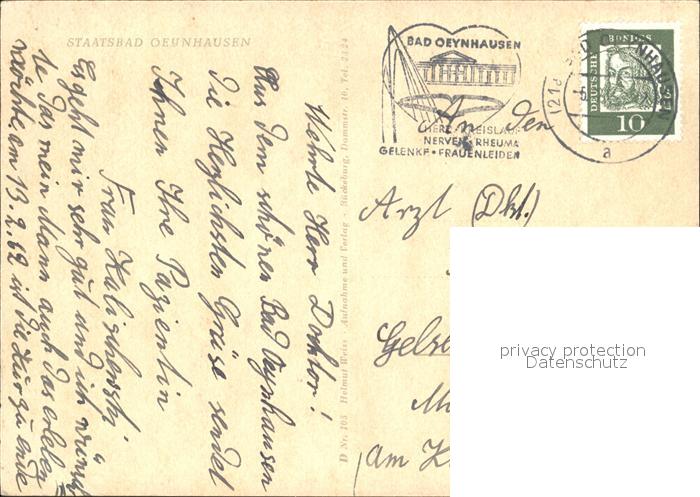 STAATSBAD OEYNHAUSEN
Wehrte Herr Doktor!
Aus dem schönen Bad Oeynhausen
die Herzlichsten Grüße sendet
Ihnen Ihre Pazientin
Frau
Es geht mir sehr gut und ich wünsch
te das mein Mann auch das erleben
würde, am 13.2.62 ist die Kur zu ende
D Nr. 105 Helmut Weiss · Aufnahme und Verlag · Bückeburg, Dammstr. 16, Tel. 2424
BAD OEYNHAUSEN
HERZ · KREISLAUF
NERVEN · RHEUMA
GELENKE · FRAUENLEIDEN
DEUTSCHE BUNDESPOST
10
a
An den
Arzt (Dkt.)
Gelse
Am K
privacy protection
Datenschutz